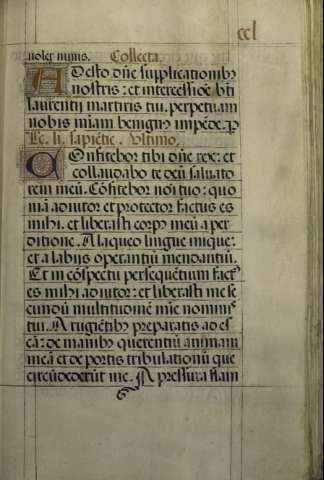 ccl
uolet nimis. Collecta.
Adesto dn̄e supplicationibꝰ
nostris: et intercessiōe bt̄i
laurentij martiris tui. perpetuam
nobis mi̅am benignꝰ impēde. ꝑ
Lc. li. sapiētie. Ultimo.
Confitebor tibi dn̄e rex: et
collaudabo te deū saluato
rem meū. Cōfitebor noī tuo: quo
niā adiutor et protector factus es
mihi. et liberasti corpꝰ meū a per
ditione. A laqueo lingue inique:
et a labijs operantiū mendatiū.
Et in cōspectu persequētium factꝰ
es mihi adiutor: et liberasti me se
cundū multitudinē mīe nominis
tui. A rugiētibꝰ preparatis ad es
cā: de manibꝰ querentiū animam
meā et de portis tribulationū que
circūdederūt me. A pressura flam